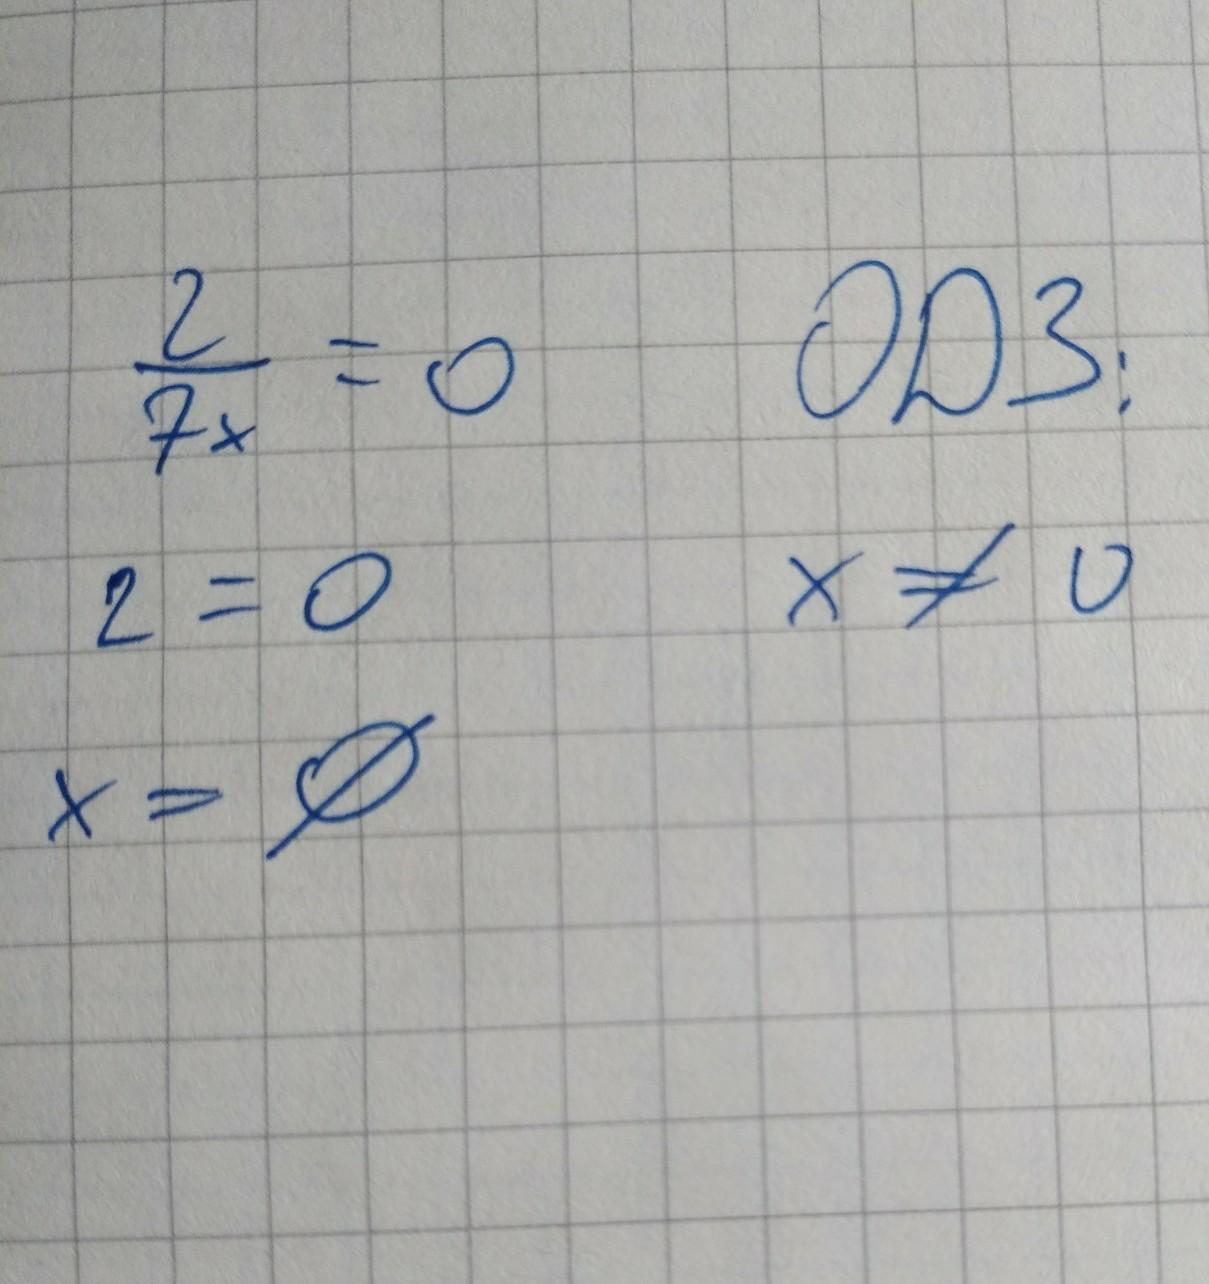 2/7x = 0 ОДЗ:
2 = 0 x ≠ 0
x = ∅